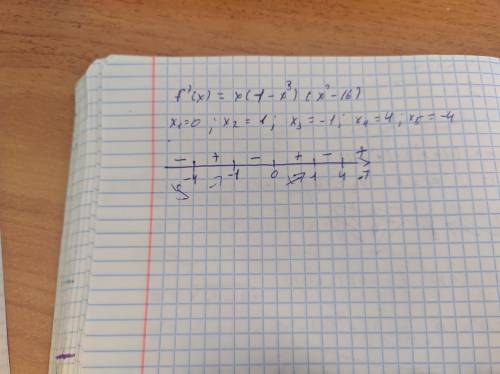 f'(x) = x(1 - x³) (x² - 16)
x₁=0 ; x₂ = 1 ; x₃ = -1 ; x₄ = 4 ; x₅ = -4
- + - + - +
-4 -1 0 1 4